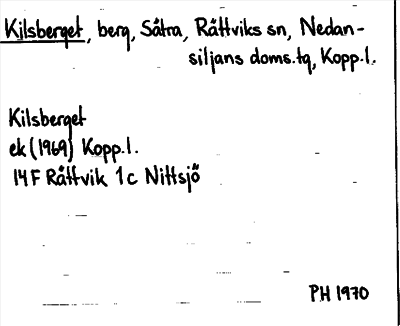 Kilsberget, berg, Såtra, Rättviks sn, Nedan-
siljans doms.tg, Kopp.l.
Kilsberget
ek (1969) Kopp.l.
14 F Rättvik 1 c Nittsjö
PH 1970